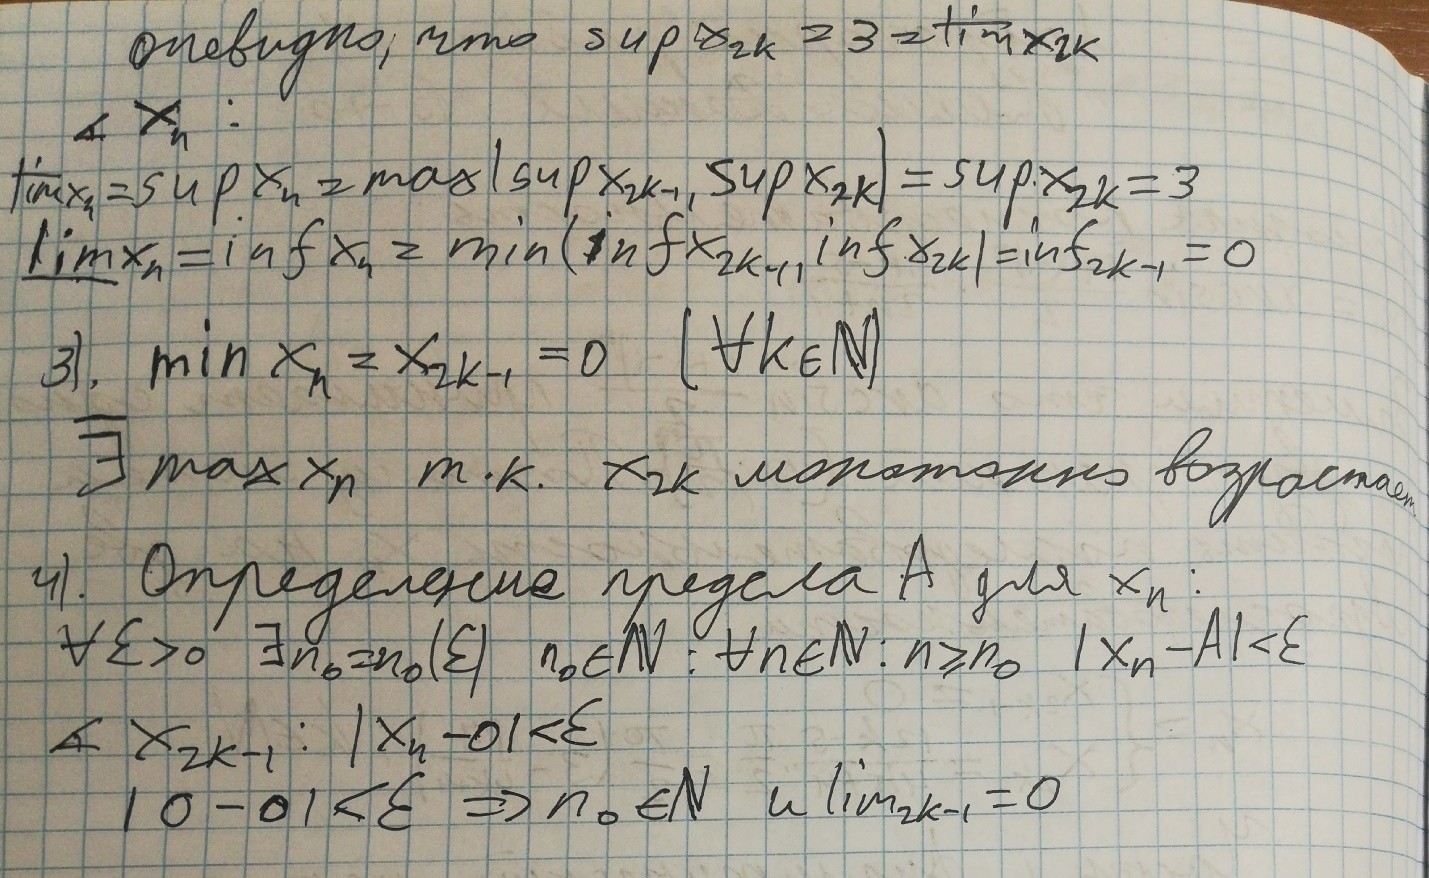 очевидно, что sup x₂ₖ = 3 = l̅i̅m̅ x₂ₖ
∢ xₙ :
l̅i̅m̅ xₙ = sup xₙ = max(sup x₂ₖ₋₁, sup x₂ₖ) = sup x₂ₖ = 3
l̲i̲m̲ xₙ = inf xₙ = min(inf x₂ₖ₋₁, inf x₂ₖ) = inf₂ₖ₋₁ = 0
3). min xₙ = x₂ₖ₋₁ = 0 (∀k∈ℕ)
∃̅ max xₙ т.к. x₂ₖ монотонно возрастает
4). Определение предела A для xₙ :
∀ε>0 ∃n₀=n₀(ε) n₀∈ℕ : ∀n∈ℕ : n⩾n₀ |xₙ-A|<ε
∢ x₂ₖ₋₁ : |xₙ-0|<ε
|0-0|<ε ⇒ n₀∈ℕ и lim₂ₖ₋₁ = 0